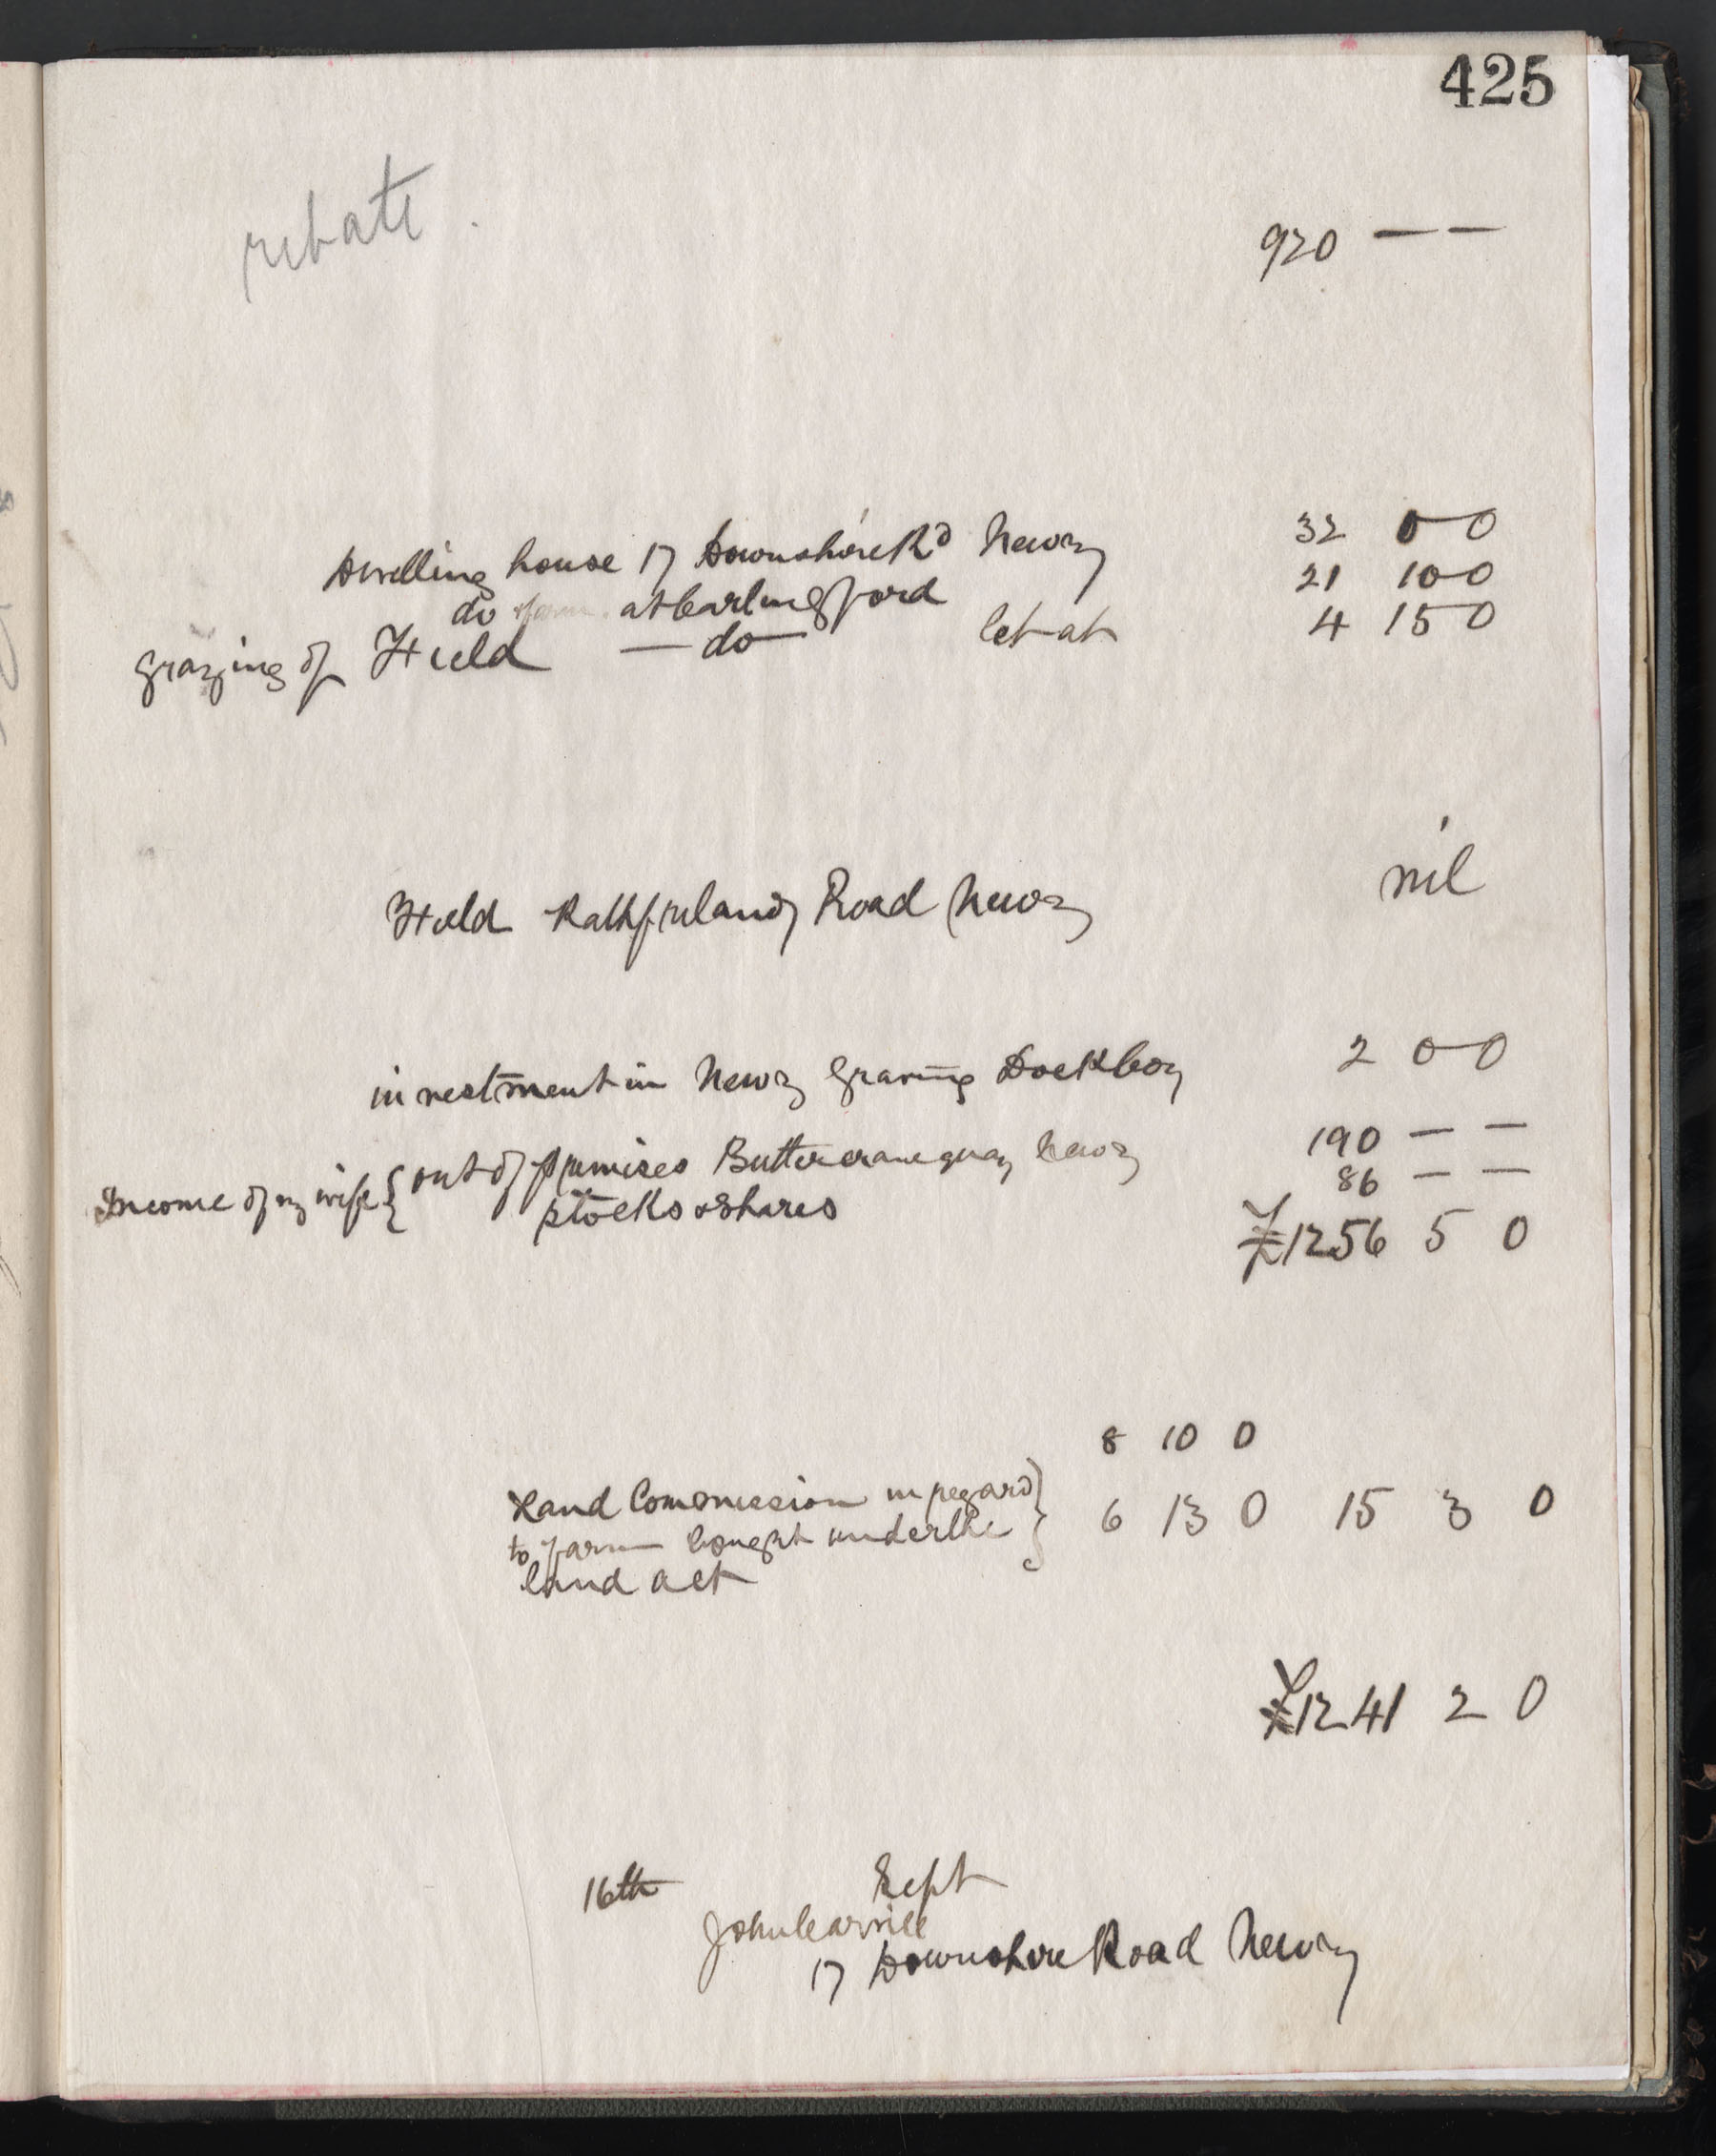 425
rebate.
920 — —
Dwelling house 17 Downshire Rd Newry 32 0 0
do farm at Carlingford 21 10 0
grazing of Field — do — let at 4 15 0
Field Rathfriland Road Newry nil
investment in Newry Graving Dock Coy 2 0 0
Income of my wife { out of premises Buttercrane quay Newry 190 — —
stocks & shares 86 — —
£1256 5 0
8 10 0
Land Commission in regard } 6 13 0 15 3 0
to farm bought under the
land act
£1241 2 0
16th Sept
John Carvill
17 Downshire Road Newry